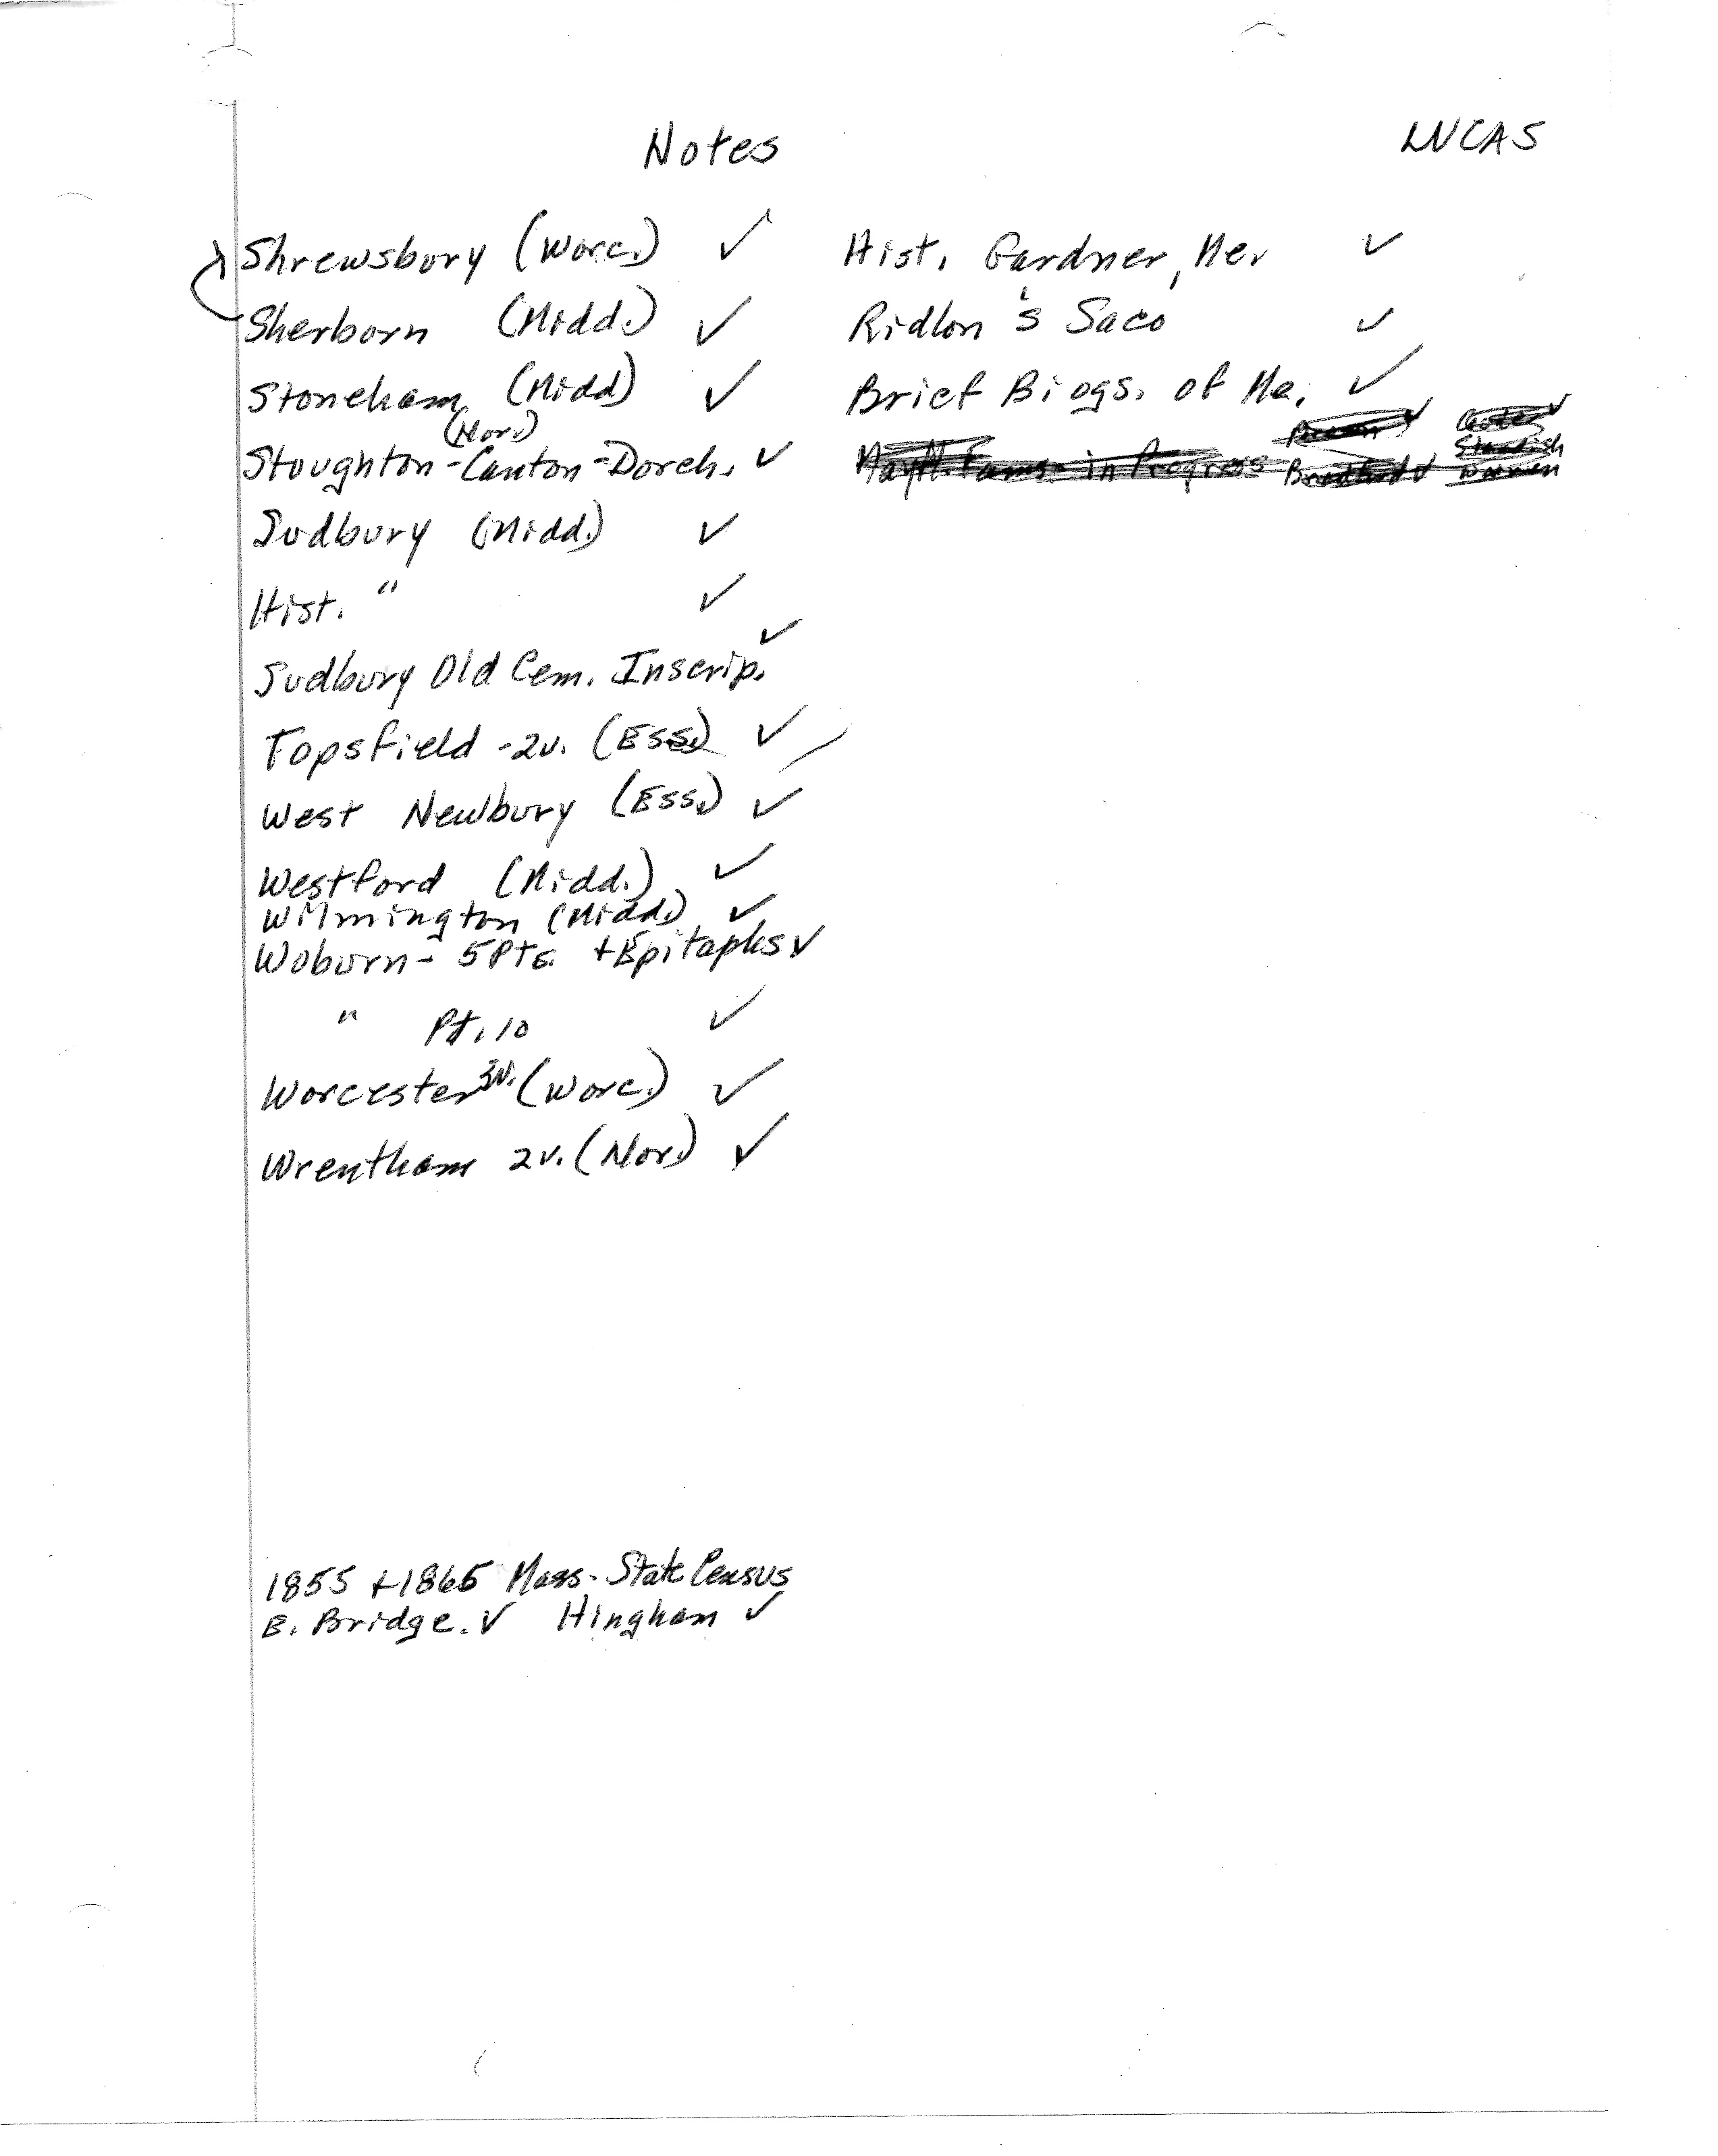 Notes
LUCAS
Shrewsbury (Worc.) ✓
Sherborn (Midd.) ✓
Stoneham (Midd) ✓
(Nor.)
Stoughton-Canton-Dorch. ✓
Sudbury (Midd.) ✓
Hist. " ✓
Sudbury Old Cem. Inscrip. ✓
Topsfield -2v. (Ess.) ✓
West Newbury (Ess.) ✓
Westford (Midd.) ✓
Wilmington (Midd.) ✓
Woburn- 5Pts. +Epitaphs ✓
" Pt. 10 ✓
Worcester 3v. (Worc.) ✓
Wrentham 2v. (Nor.) ✓
Hist. Gardner, Me. ✓
Ridlon's Saco ✓
Brief Biogs. of Me. ✓
Mayfl. Fams. in Progress
Standish
1855 +1865 Mass. State Census
E. Bridge. ✓ Hingham ✓